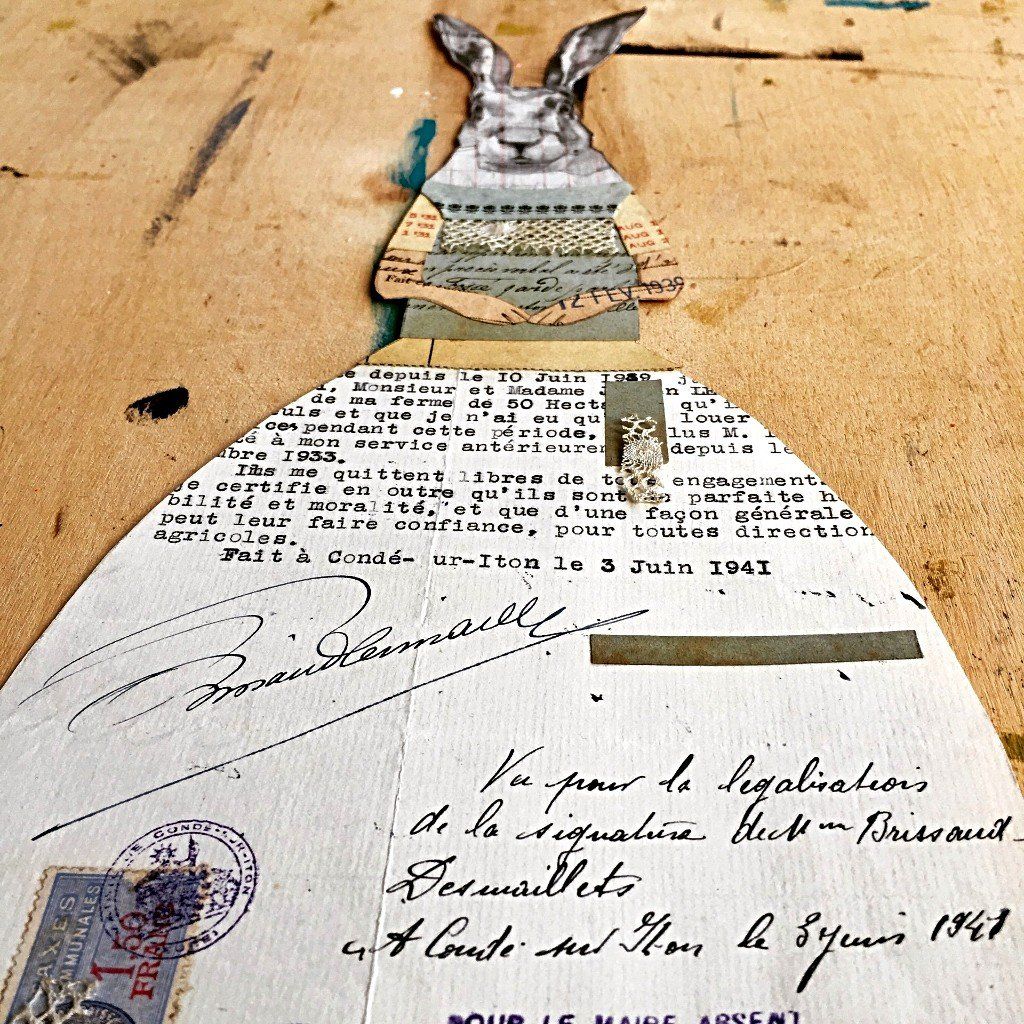 5 '31
7 '31
1 '31
AUG
AUG 1
AUG 2
Fait
garde
12 FEV 1939
e depuis le 10 Juin 1939, j
, Monsieur et Madame J
de ma ferme de 50 Hecta qu'i
uls et que je n'ai eu qu louer
ces pendant cette période, lus M.
é à mon service antérieurem depuis le
bre 1933.
Ils me quittent libres de to engagement
e certifie en outre qu'ils sont parfaite h
bilité et moralité, et que d'une façon générale
peut leur faire confiance, pour toutes direction
agricoles.
Fait à Condé- ur-Iton le 3 Juin 1941
Vu pour la legalisation
de la signature de Mme Brissaud-
Desmaillets
A Condé sur Iton le 3 juin 1941
CONDÉ-SUR-ITON
TAXES
COMMUNALES
1,50
FRANC
POUR LE MAIRE ABSENT